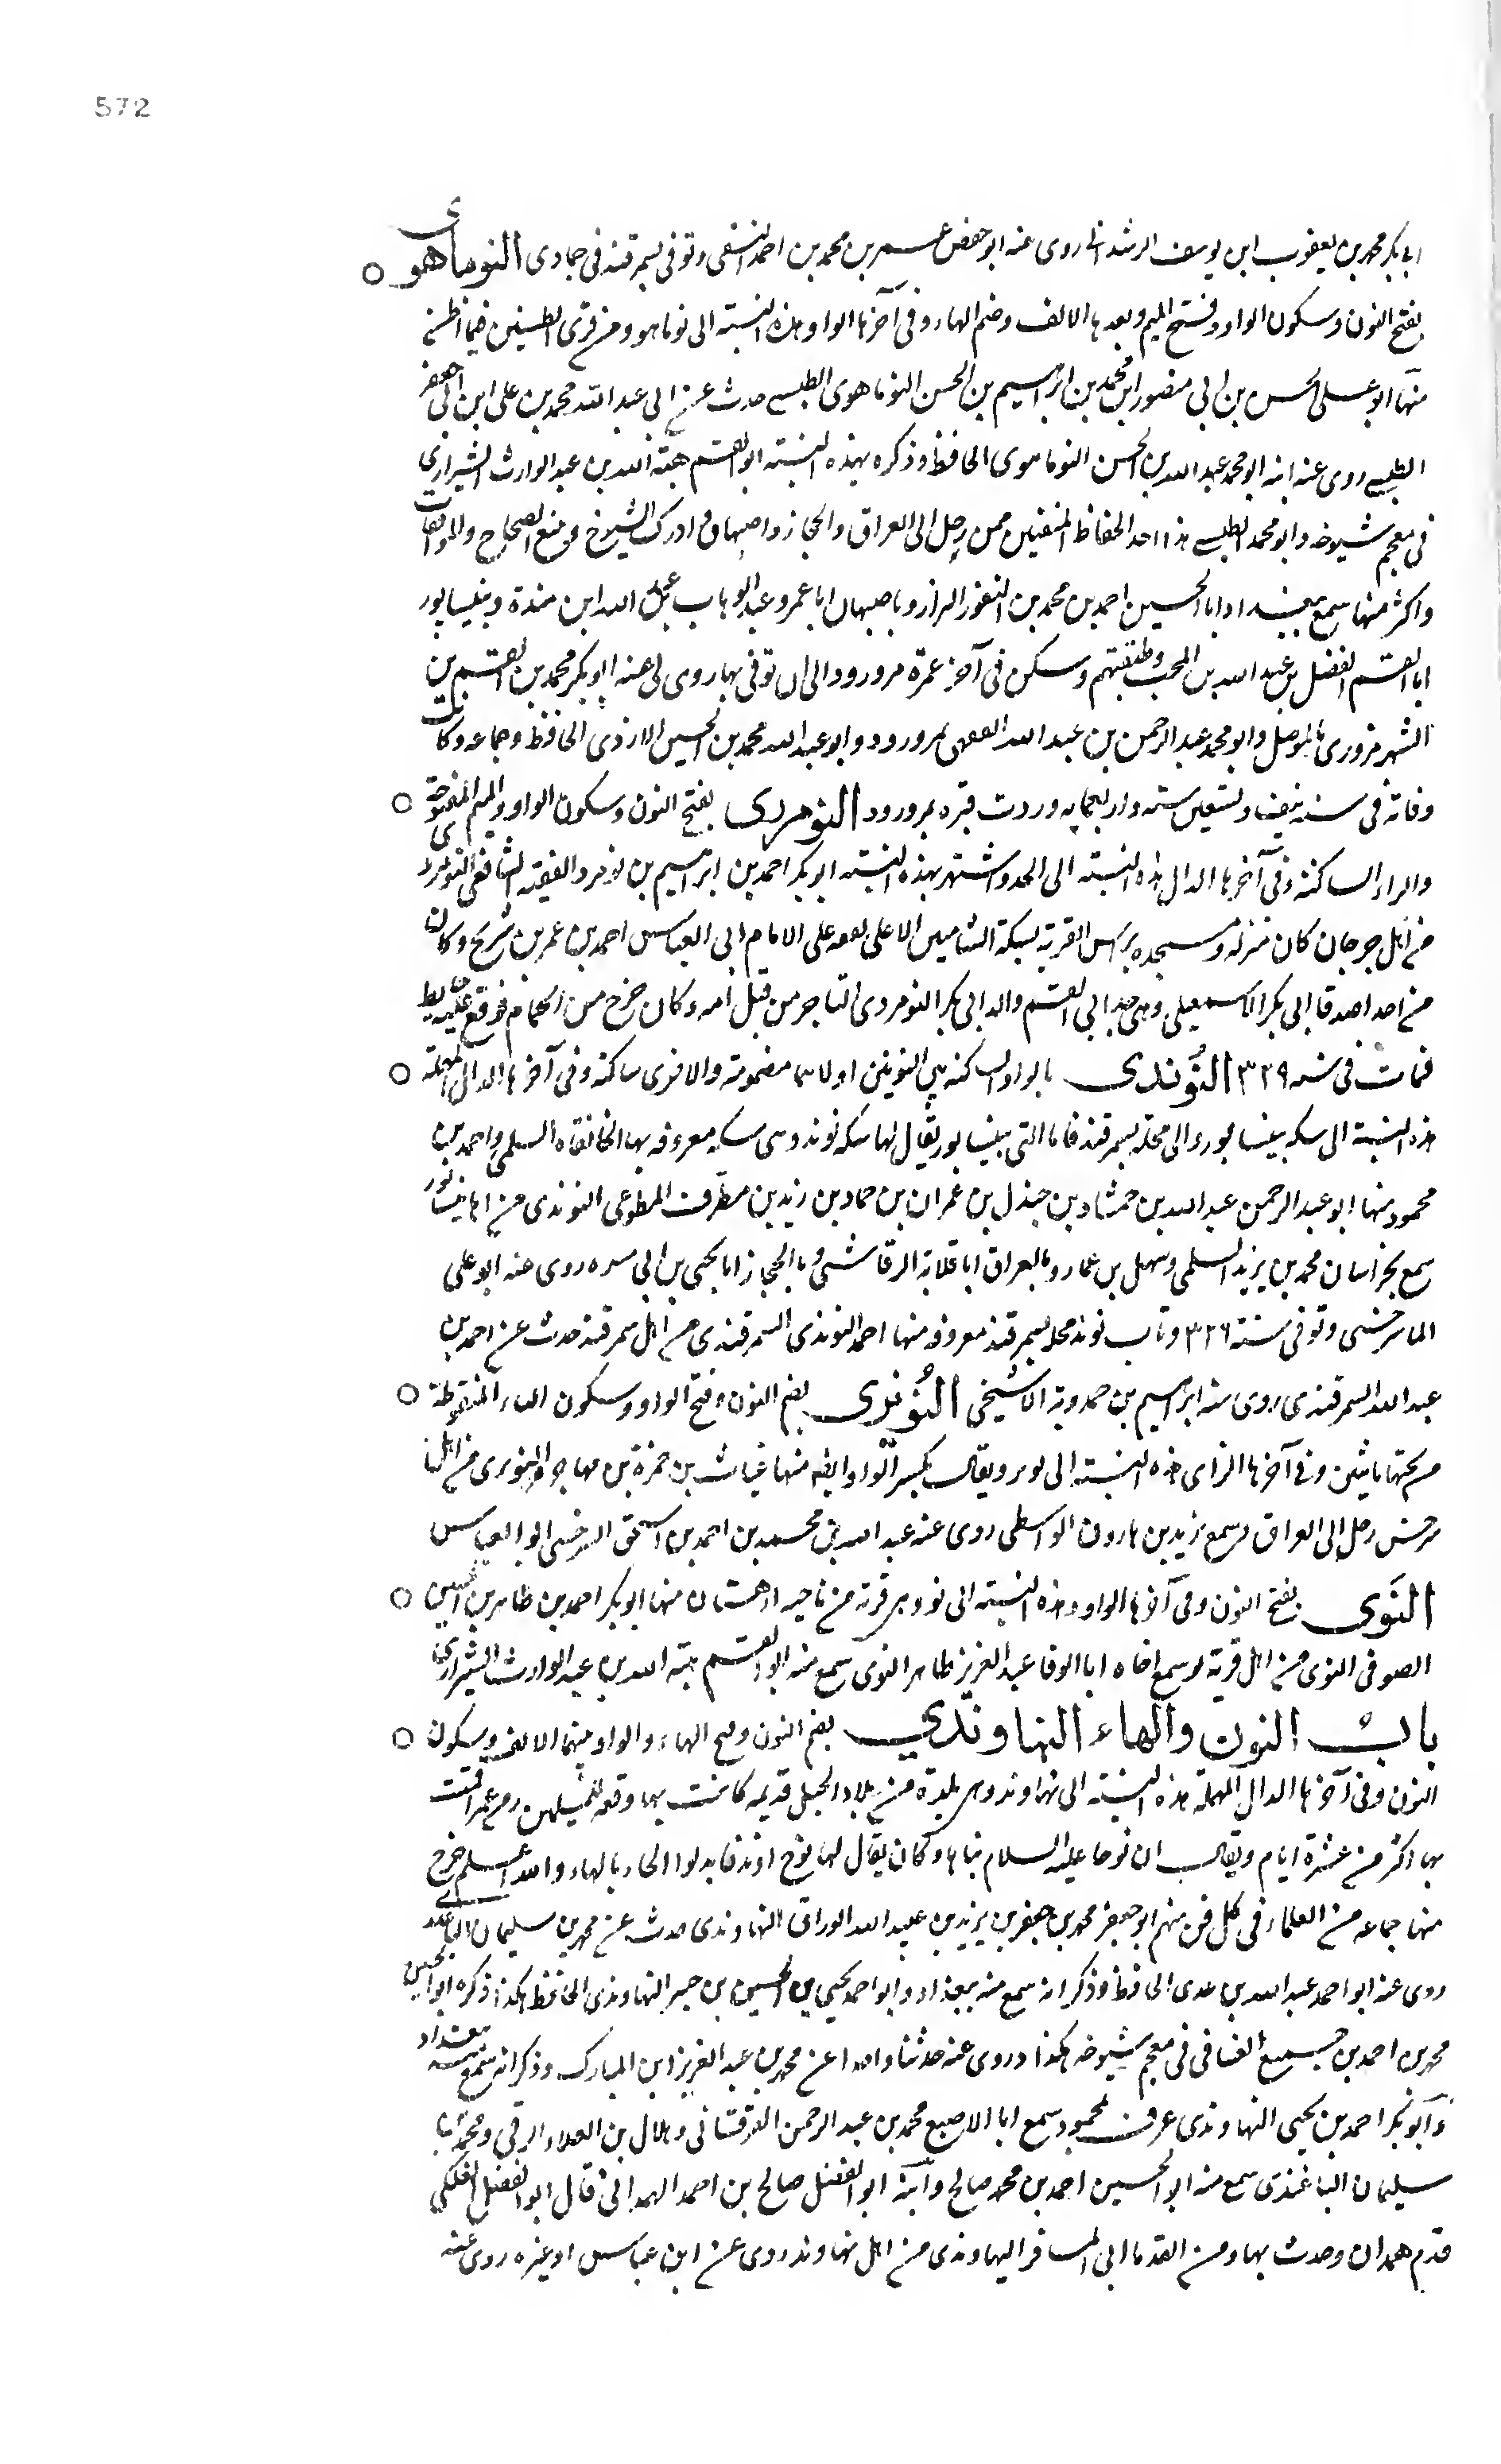 572
ابى بكر محمد بن يعقوب ابن يوسف الرشدانى روى عنه ابو حفص عمر بن محمد بن احمد النسفى وتوفى بسمرقند فى جمادى النوماهوى
بفتح النون وسكون الواو وفتح الميم وبعدها الالف وضم الهاء وفى آخرها الواو هذه النسبة الى نوماهو وهى من قرى الطبسين فيما اظن
منها ابو على الحسن بن ابى منصور ابن محمد بن ابراهيم بن الحسن النوماهوى الطبسى حدث عن ابى عبد الله محمد بن على ابن ابى جعفر
الطبسى روى عنه ابنه ابو محمد عبد الله بن الحسن النوماهوى الحافظ وذكره بهذه النسبة ابو القسم هبة الله بن عبد الوارث الشيرازى
فى معجم شيوخه وابو محمد الطبسى هذا احد الحفاظ المتقنين ممن رحل الى العراق والحجاز واصبهان ادرك الشيوخ وجمع الصحاح والموافقات
واكثر منها سمع ببغداد ابا الحسين احمد بن محمد بن النقور البزاز وباصبهان ابا عمرو عبد الوهاب بن عبد الله ابن مندة وبنيسابور
ابا القسم الفضل بن عبد الله بن المحب وطبقتهم وسكن فى آخر عمره مرورود الى ان توفى بها روى لى عنه ابو بكر محمد بن القسم بن
الشهرزورى بالموصل وابو محمد عبد الرحمن بن عبد الله الفقيه بمرورود وابو عبد الله محمد بن الحسين الازذى الحافظ وجماعه وكانت
وفاته فى سنه نيف وتسعين سته واربعمايه وزرت قبره بمرورود النومردى بفتح النون وسكون الواو والميم المفتوحة
والراء الساكنة وفى آخرها الدال هذه النسبة الى الجد واشتهر بهذه النسبه ابو بكر احمد بن ابراهيم بن نومرد الفقيه الشافعى النومردى
من اهل جرجان كان منزله ومسجده براس القرية بسكة الشاميين الاعلى تفقه على الامام ابى العباس احمد بن عمر بن شريح وكان
من احد اصدقا ابى بكر الاسمعيلى وهو جد ابى القسم والد ابى بكر النومردى التاجر من قبل امه وكان خرج من الحمام فوقع عليه حايط
فمات فى سنه ٣٣٩ النُوندى بالواو الساكنه بين النونين اولاهما مضمومة والاخرى ساكنه وفى آخرها الدال المهملة
هذه النسبة الى سكه بنيسابور والى محلة بسمرقند فاما التى بنيسابور يقال لها سكه نوند وهى سكه معروفه بها الخانقاه السلمى واحمد بن
محمود منها ابو عبد الرحمن عبد الله بن حمشاد بن جندل بن عمران بن حماد بن زيد بن مطرف المطوعى النوندى من اهل نيسابور
سمع بخراسان محمد بن يزيد السلمى وسهل بن عمار وبالعراق ابا قلابة الرقاشى وبالحجاز ابا يحيى بن ابى مسره روى عنه ابو على
الماسرخسى وتوفى سنة ٣٢٦ وباب نوند محله بسمرقند معروفه منها احمد النوندى السمرقندى من اهل سمرقند حدث عن احمد بن
عبد الله السمرقندى روى عنه ابراهيم بن حمدوية الاشيخنى النُوَيزى بضم النون وفتح الواو وسكون الياء المنقوطة
من تحتها باثنين وفى آخرها الزاى هذه النسبة الى نويز ويقال بكسر الواو ايضا منها غياث بن حمزة بن مهاجر النويزى من اهل
سرخس رحل الى العراق وسمع يزيد بن هارون الواسطى روى عنه عبد الله بن محمد بن احمد بن اسحق السرخسى ابو العباس
النَوى بفتح النون وفى آخرها الواو وهذه النسبة الى نوو وهى قرية من ناحيه دهستان منها ابو بكر احمد بن طاهر بن الحسين
الصوفى النوى من اهل قرية نو سمع اخاه ابا الوفا عبد العزيز طاهر النوى سمع منه ابو القسم هبة الله بن عبد الوارث الشيرازى
باب النون والهاء النهاوندي بضم النون وفتح الهاء والواو بينهما الالف وسكون
النون وفى آخرها الدال المهملة هذه النسبة الى نهاوند وهى بلدة من بلاد الجبل قديمه كانت بها وقعه للمسلمين زمن عمر اقمت
بها اكثر من عشرة ايام ويقال ان نوحا عليه السلام بناها وكان يقال لها نوح اوند فابدلوا الحاء بالهاء والله اعلم خرج
منها جماعه من العلماء فى كل فن منهم ابو جعفر محمد بن جعفر بن يزيد بن عبيد الله الوراق النهاوندى حدث عن محمد بن سليمان الباغندى
روى عنه ابو احمد عبد الله بن عدى الحافظ وذكر انه سمع منه ببغداد وابو احمد يحيى بن الحسين بن جبر النهاوندى الحافظ هكذا ذكره ابو الحسين
محمد بن احمد بن جميع الغسانى فى معجم شيوخه هكذا وروى عنه حدثنا واحدا عن محمد بن عبد العزيز ابن المبارك وذكر انه سمع منه ببغداد
وابو بكر احمد بن يحيى النهاوندى عرف بمحمود سمع ابا الاصبع محمد بن عبد الرحمن القرقسانى وهلال بن العلاء الرقى ومحمد بن
سليمان الباغندى سمع منه ابو الحسين احمد بن محمد صالح وابنه ابو الفضل صالح بن احمد الهمدانى قال ابو الفضل الفلكى
قدم همدان وحدث بها ومن القدما ابى المسافر النهاوندى من اهل نهاوند روى عن ابن عباس اوغيره روى عنه